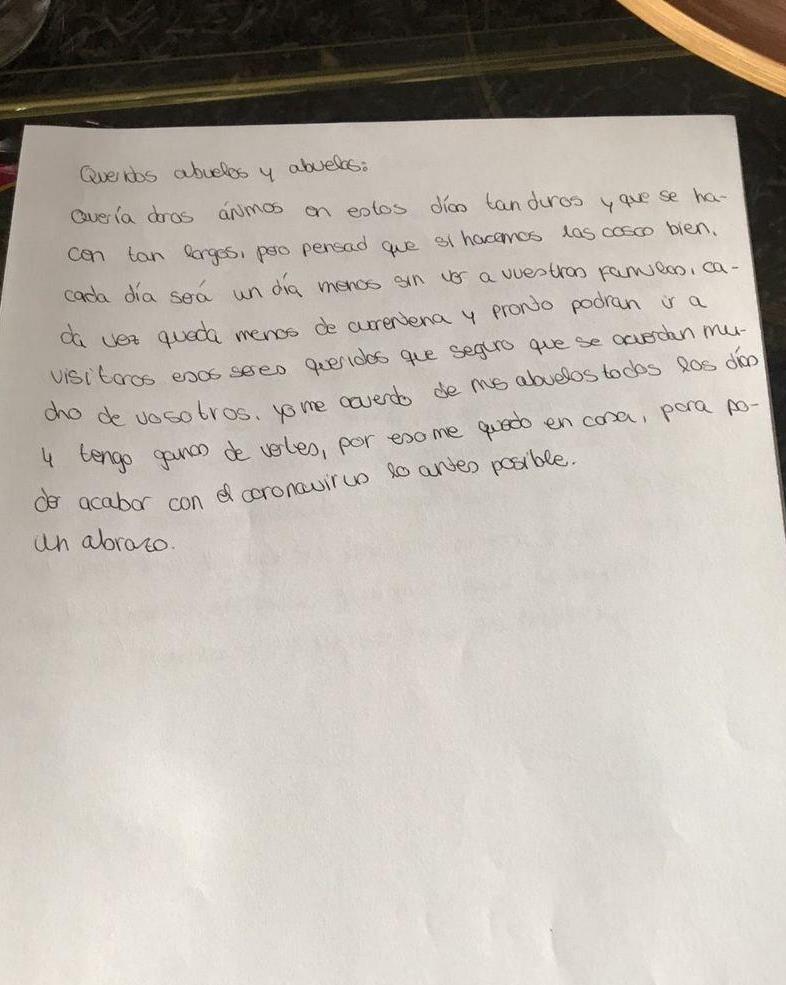 Queridos abuelos y abuelas:
Quería daros ánimos en estos días tan duros y que se ha-
cen tan largos, pero pensad que si hacemos las cosas bien,
cada día será un día menos sin ver a vuestras familias, ca-
da vez queda menos de cuarentena y pronto podran ir a
visitaros esos seres queridos que seguro que se acuerdan mu-
cho de vosotros. yo me acuerdo de mis abuelos todos los días
y tengo ganas de verles, por eso me quedo en casa, para po-
der acabar con el coronavirus lo antes posible.
Un abrazo.